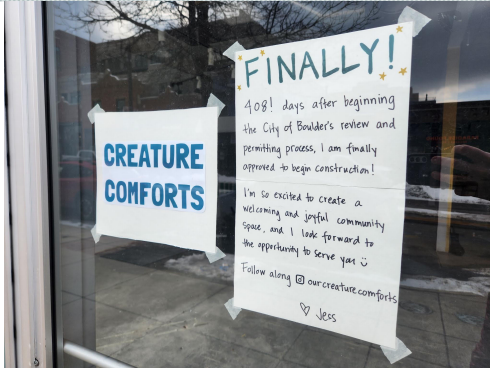 CREATURE
COMFORTS
FINALLY!
408! days after beginning
the City of Boulder's review and
permitting process, I am finally
approved to begin construction!
I'm so excited to create a
welcoming and joyful community
space, and I look forward to
the opportunity to serve you
Follow along ourcreaturecomforts
Jess